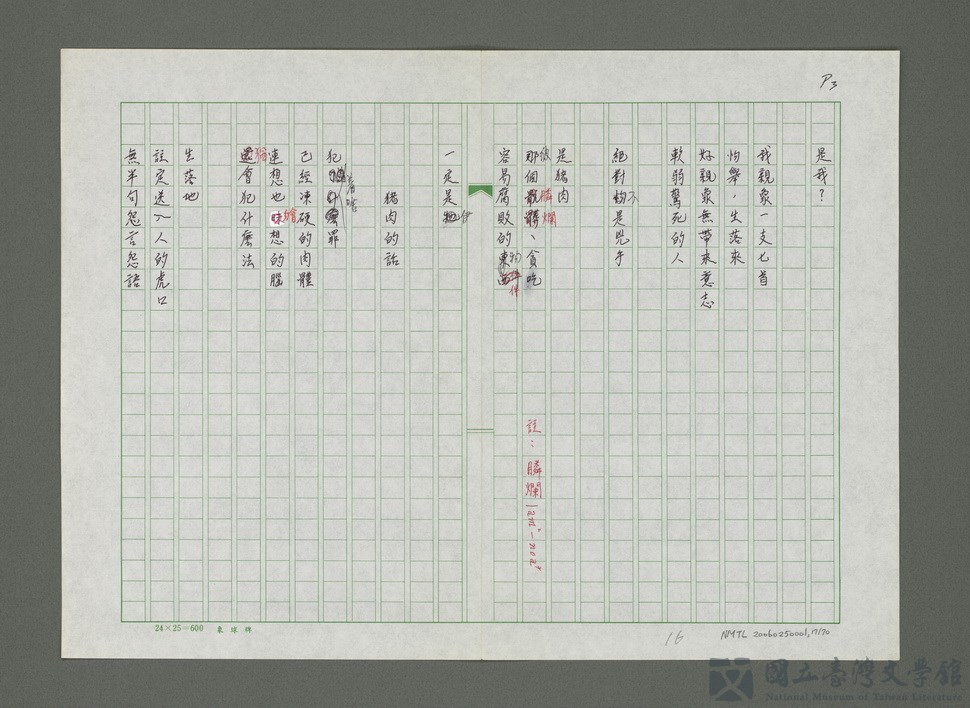 P3
是我？
我親象一支匕首
灼舉，生落來
好親象無帶來意志
軟弱驚死的人
絕對不是兇手
是豬肉
彼個膦爛、貪吃
容易腐敗的物件
註：膦爛
一定是
豬肉的話
犯罪
已經凍硬的肉體
連想也想的腦
猶會犯什麼法
生落地
註定送入人的虎口
無半句怨言怨語
24×25=600
16
NMTL 20060250001, 17/70
國立臺灣文學館
National Museum of Taiwan Literature